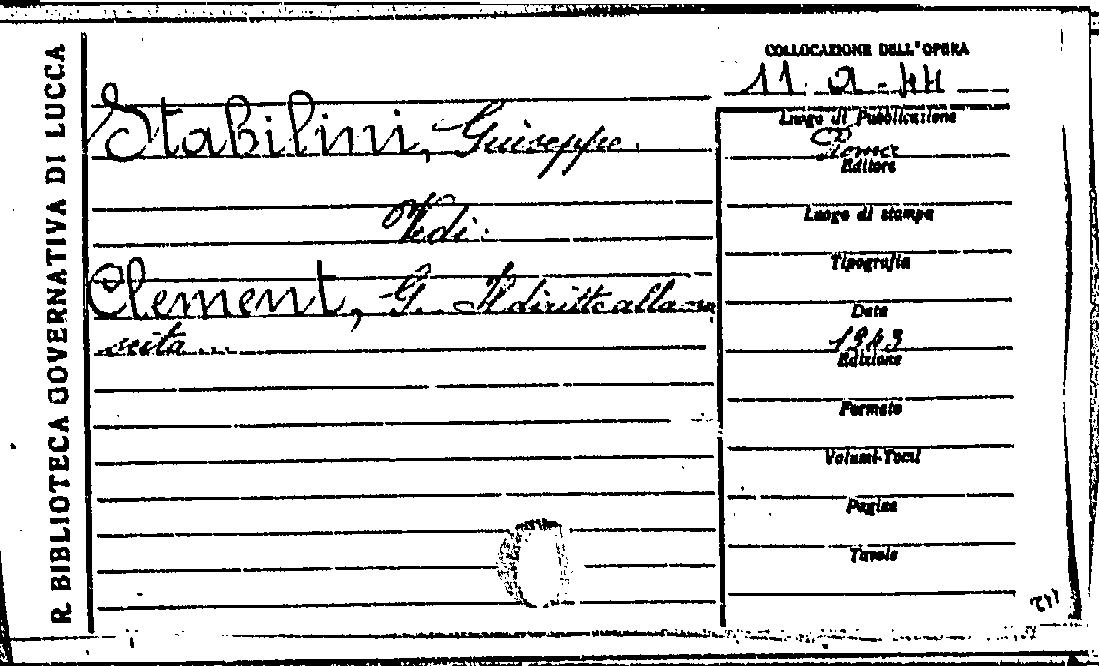 R. BIBLIOTECA GOVERNATIVA DI LUCCA
COLLOCAZIONE DELL'OPERA
11. a - 44
Stabilini, Giuseppe.
Vedi:
Clement, G. Il diritto alla na
scita...
Luogo di Pubblicazione
Roma
Editore
Luogo di stampa
Tipografia
Data
1943
Edizione
Formato
Volumi-Tomi
Pagine
Tavole